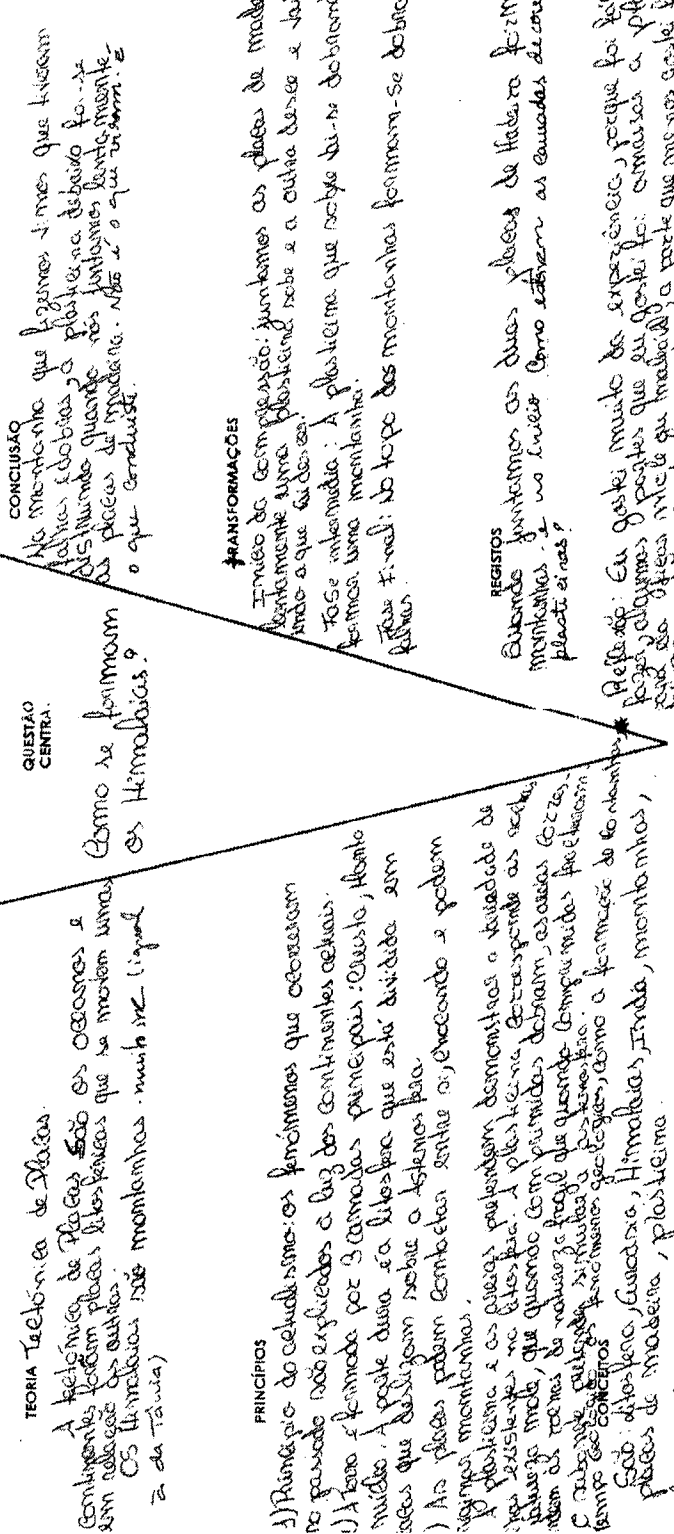 TEORIA Tectónica de Placas.
A tectónica de Placas são os oceanos e
continentes formam placas litosféricas que se movem umas
em relação às outras.
Os Himalaias são montanhas. muito inc (igual
à da Tânia)
PRINCÍPIOS
1) Princípio do actualismo: os fenómenos que ocorreram
no passado são explicados à luz dos continentes actuais.
) A terra é formada por 3 camadas principais: Crusta, Manto
núcleo. A parte dura é a litosfera que está dividida em
placas que deslizam sobre a Astenosfera.
) As placas podem contactar entre si, chocando e podem
montanhas.
A plasticina e as areias pretendem demonstrar a variedade de
existentes na litosfera. A plasticina corresponde as rochas
mole, que quando comprimidas dobriam, as areias corres-
as rochas de natureza frágil que quando comprimidas fracturam.
O sabonete pretende simular a astenosfera.
tempo fenómenos geológicos, como a formação de montanhas
CONCEITOS
São: litosfera, Eurásia, Himalaias, Índia, montanhas,
placas de madeira, plasticina.
QUESTÃO
CENTRA.
Como se formam
os Himalaias?
CONCLUSÃO
Na montanha que fizemos vimos que tiveram
falhas e dobras, a plasticina debaixo foi-se
quando nós juntamos lentamente
as placas de madeira. Não é o que viram. é
o que concluíste.
TRANSFORMAÇÕES
Início da compressão: juntamos as placas de made
lentamente uma plasticina sobe e a outra desce e vai
indo a que
Fase intermédia: A plasticina que sobe vai-se dobrando
formar uma montanha.
Fase Final: No topo das montanhas formam-se dobras
falhas.
REGISTOS
Quando juntamos as duas placas de Madeira form
montanhas. e no início Como estavam as camadas de cores
plasticinas?
* Reflexão: Eu gostei muito da experiência, porque foi fá
fazer, algumas partes que eu gostei foi amassar a pl
a parte que menos gostei f